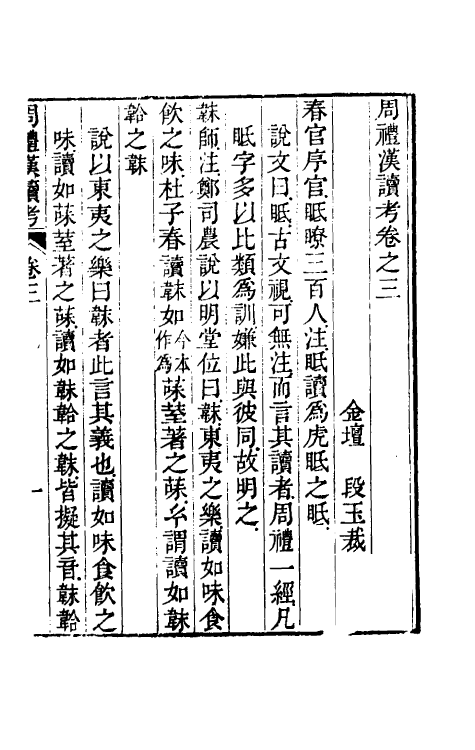 周禮漢讀考卷之三
金壇 段玉裁
春官序官眂瞭三百人注眂讀爲虎眂之眂
說文曰眂古文視可無注而言其讀者周禮一經凡
眂字多以比類爲訓嫌此與彼同故明之
韎師注鄭司農說以明堂位曰韎東夷之樂讀如味食
飮之味杜子春讀韎如今本作爲菋荎著之菋𤣥謂讀如韎
韐之韎
說以東夷之樂曰韎者此言其義也讀如味食飮之
味讀如菋荎著之菋讀如韎韐之韎皆擬其音韎韐
周禮漢讀考 卷三 一